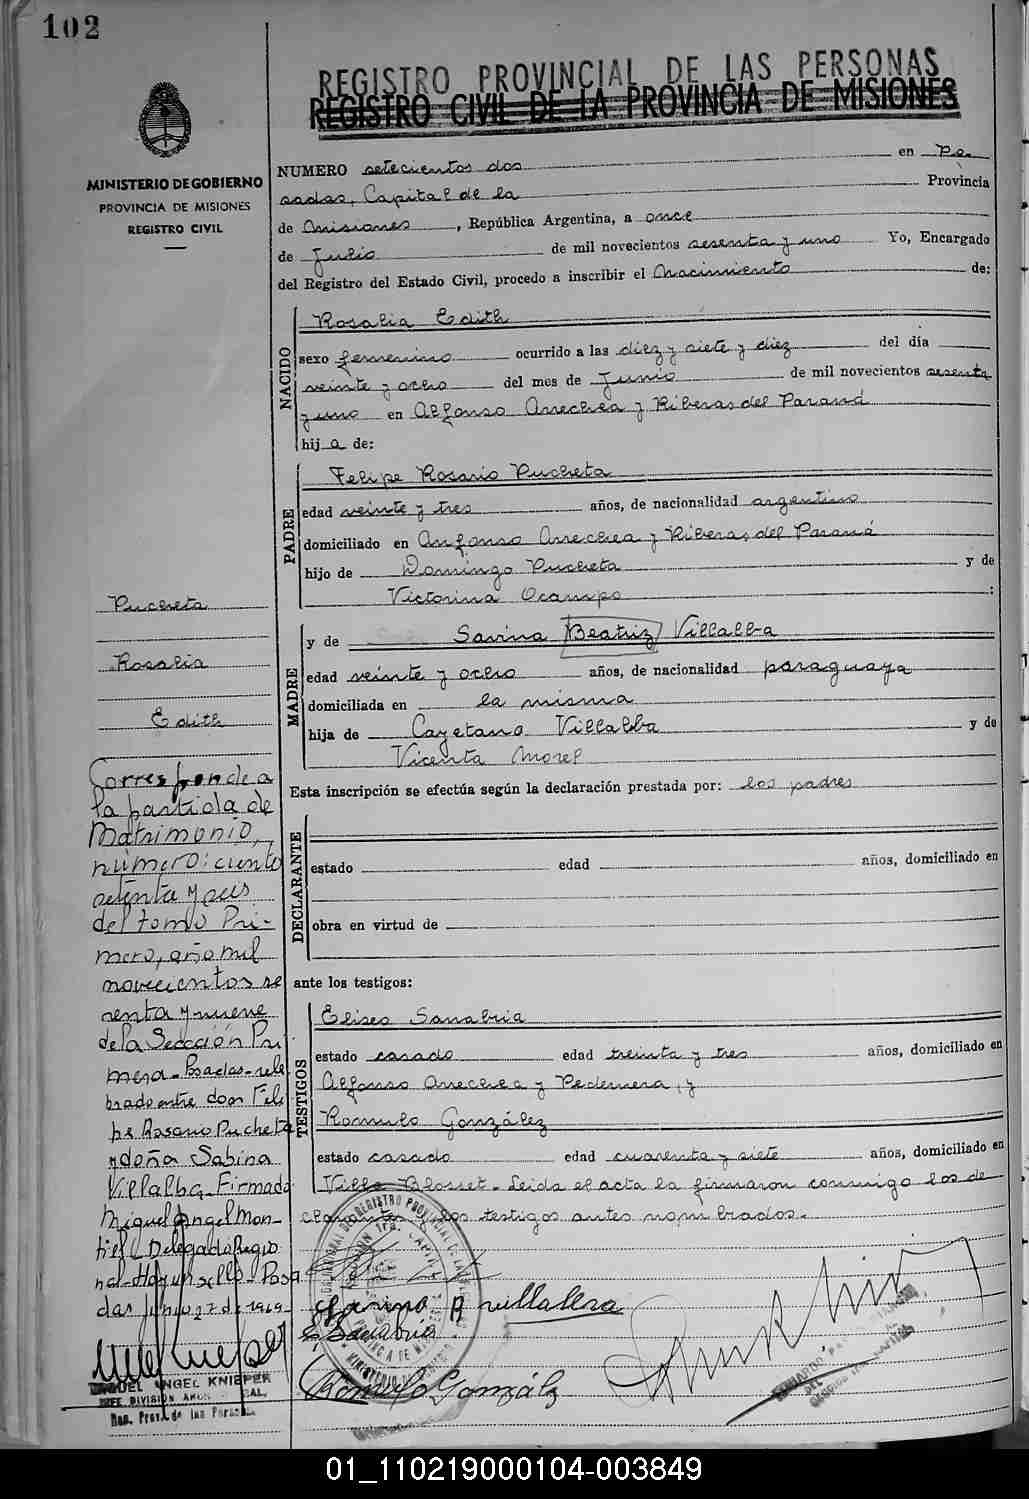 102
REGISTRO PROVINCIAL DE LAS PERSONAS
REGISTRO CIVIL DE LA PROVINCIA DE MISIONES
MINISTERIO DE GOBIERNO
PROVINCIA DE MISIONES
REGISTRO CIVIL
NUMERO setecientos dos en Po
sadas, Capital de la Provincia
de Misiones, República Argentina, a once
de Julio de mil novecientos sesenta y uno Yo, Encargado
del Registro del Estado Civil, procedo a inscribir el Nacimiento de:
NACIDO
Rosalia Edith
sexo femenino ocurrido a las diez y siete y diez del día
veinte y ocho del mes de Junio de mil novecientos sesenta
y uno en Alfonso Arrechea y Riberas del Paraná
hij a de:
PADRE
Felipe Rosario Pucheta
edad veinte y tres años, de nacionalidad argentino
domiciliado en Anfonso Arrechea y Riberas del Paraná
hijo de Domingo Pucheta y de
Victorina Ocampo :
MADRE
y de Savina Beatriz Villalba
edad veinte y ocho años, de nacionalidad paraguaya
domiciliada en la misma
hija de Cayetano Villalba y de
Vicenta Morel
Esta inscripción se efectúa según la declaración prestada por: los padres
DECLARANTE
estado edad años, domiciliado en
obra en virtud de
ante los testigos:
TESTIGOS
Eliseo Sanabria
estado casado edad treinta y tres años, domiciliado en
Alfonso Arrechea y Pedernera, y
Romulo González
estado casado edad cuarenta y siete años, domiciliado en
Villa Blosset - Leida el acta la firmaron conmigo los de
clarantes y los testigos antes nombrados.-
Sarina B villalba
E. Sanabria
Romulo González
Pucheta
Rosalia
Edith
Corresponde a
la partida de
Matrimonio,
número: ciento
setenta y seis
del tomo Pri-
mero, año mil
novecientos se
senta y nueve
de la Sección Pri
mera - Posadas - cele
brado entre don Feli
pe Rosario Pucheta
y doña Sabina
Villalba - Firmado
Miguel Angel Mon-
tiel - Delegado Regio
nal - Hay un sello - Posa
das junio 27 de 1969 -
MIGUEL ANGEL KNIEPER
JEFE DIVISION
Reg. Prov. de las Personas
01_110219000104-003849